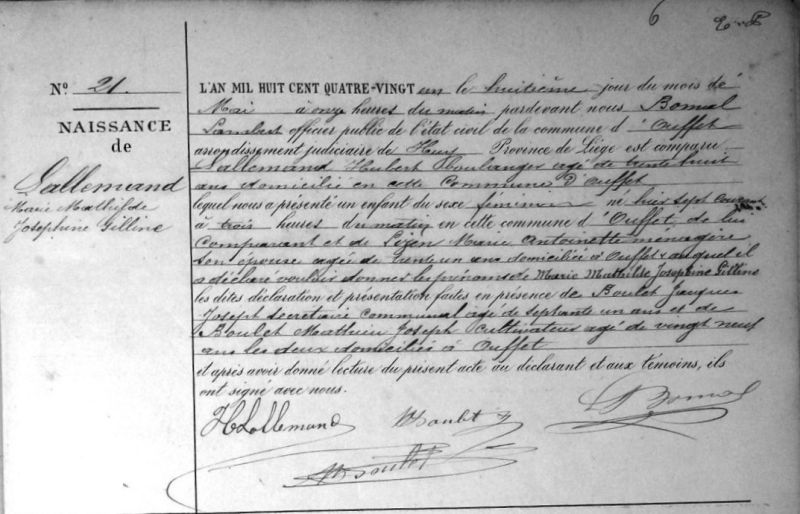 6
Nº 21.
NAISSANCE
de
Lallemand
Marie Mathilde
Josephine Gilline
L'AN MIL HUIT CENT QUATRE-VINGT un le huitième jour du mois de
Mai à onze heures du matin pardevant nous Bomal
Lambert officier public de l'état civil de la commune d'Ouffet
arrondissement judiciaire de Huy Province de Liége est comparu
Lallemand Hubert boulanger agé de trente huit
ans domicilié en cette Commune d'Ouffet
lequel nous a présenté un enfant du sexe feminin né hier sept courant
à trois heures du matin en cette commune d'Ouffet, de lui
Comparant et de Lizen Marie Antoinette ménagère
son épouse agée de trente un ans domiciliée à Ouffet & auquel il
a déclaré vouloir donner les prénoms de Marie Mathilde Josephine Gilline
les dites déclaration et présentation faites en présence de Boulet Jacques
Joseph secrétaire communal agé de septante un ans et de
Boulet Mathieu Joseph Cultivateur agé de vingt neuf
ans les deux domiciliés à Ouffet
et après avoir donné lecture du présent acte au déclarant et aux témoins, ils
ont signé avec nous.
HLallemand Boulet LBomal
Boulet